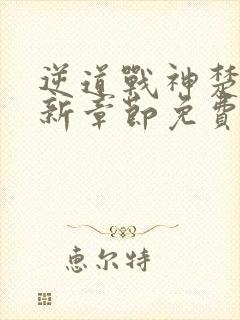 逆道戰神楚
新章節免費
恵尔特